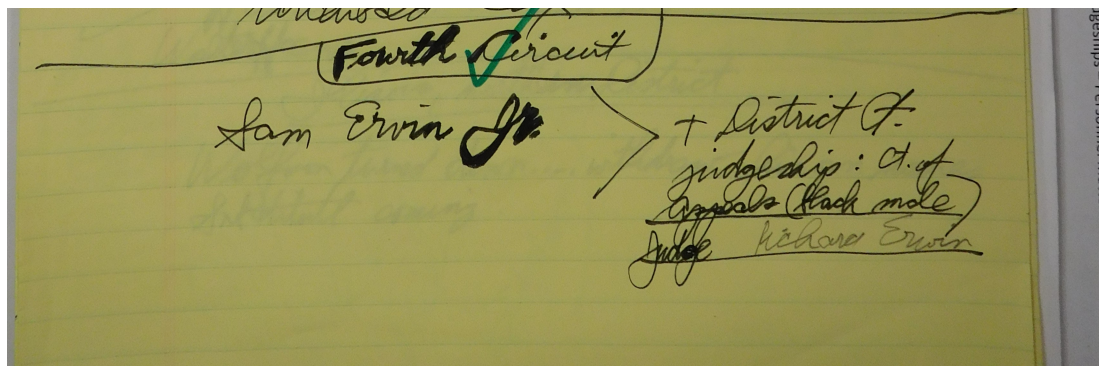 Fourth Circuit
Sam Ervin Jr.
+ District Ct.
judgeship : Ct. of
Appeals (black male)
Judge Richard Erwin